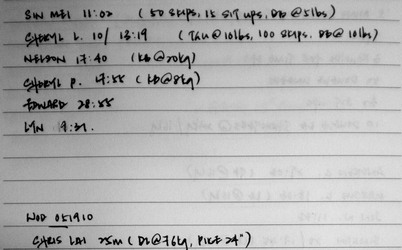 SIN MEI 11:02 (50 SKIPS, 15 SIT UPS, DB @ 5lbs)
SHERYL L. 10/ 13:19 (T&U @ 10lbs, 100 SKIPS, DB @ 10lbs)
NELSON 17:40 (KB @ 20kg)
SHERYL P. 17:55 (KB @ 8kg)
EDWARD 28:55
LYN 9:31.
WOD 051910
CHRIS LAI 25m (DL @ 76kg, PIKE 24")